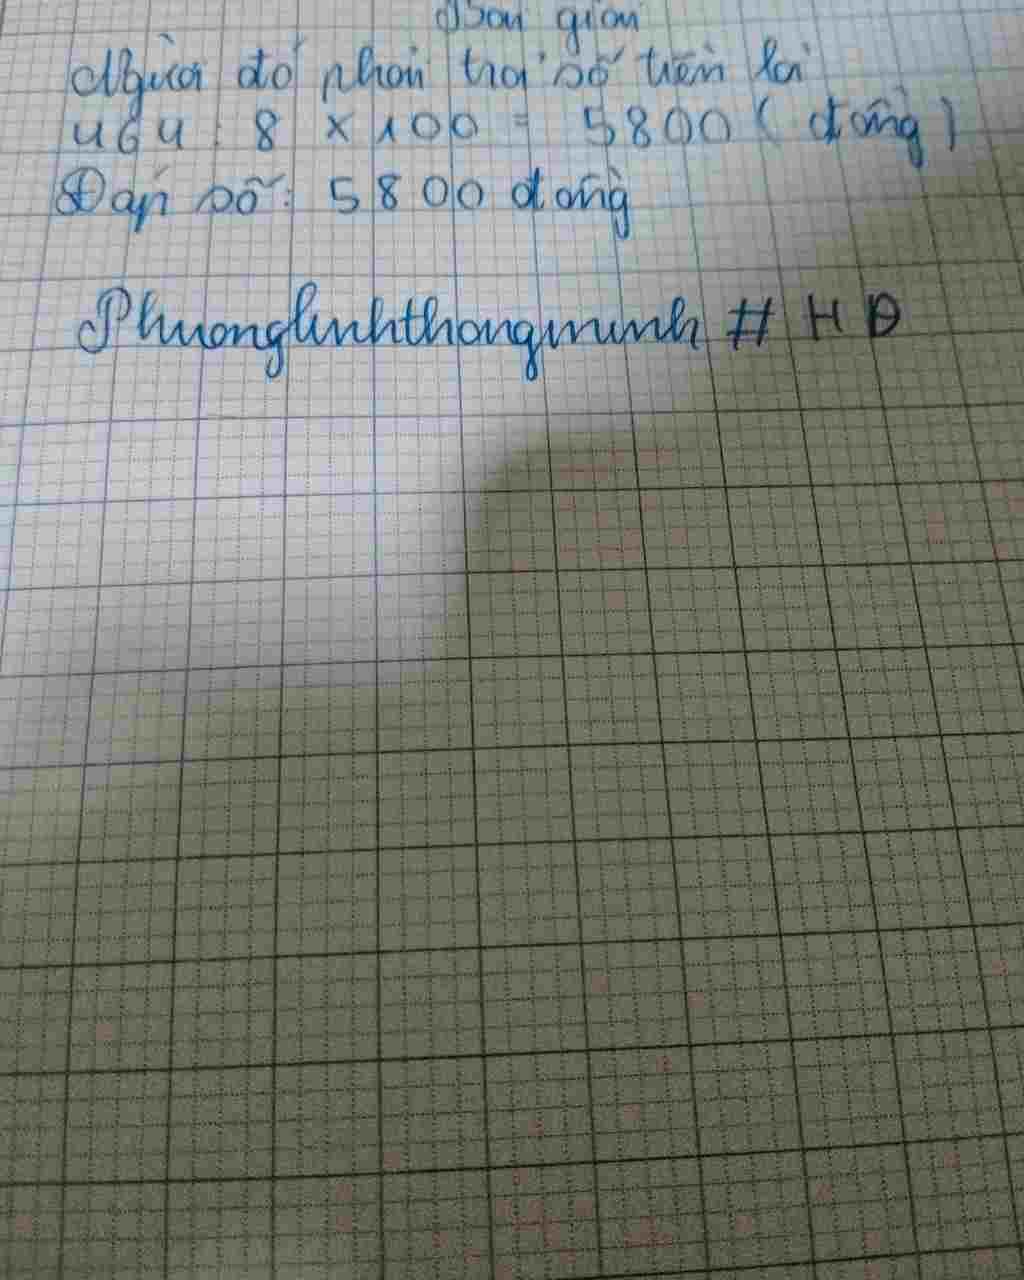 Bài giải
Người đó phải trả số tiền là
464 : 8 x 100 = 5800 ( đồng )
Đáp số : 5800 đồng
Phuonglinhthongminh # HD